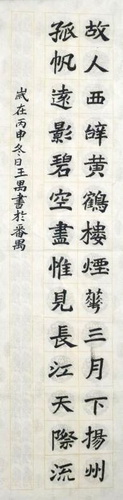 故人西辤黄鶴樓煙蕐三月下揚州
孤帆遠影碧空盡惟見長江天際流
歲在丙申冬日王禺書於番禺